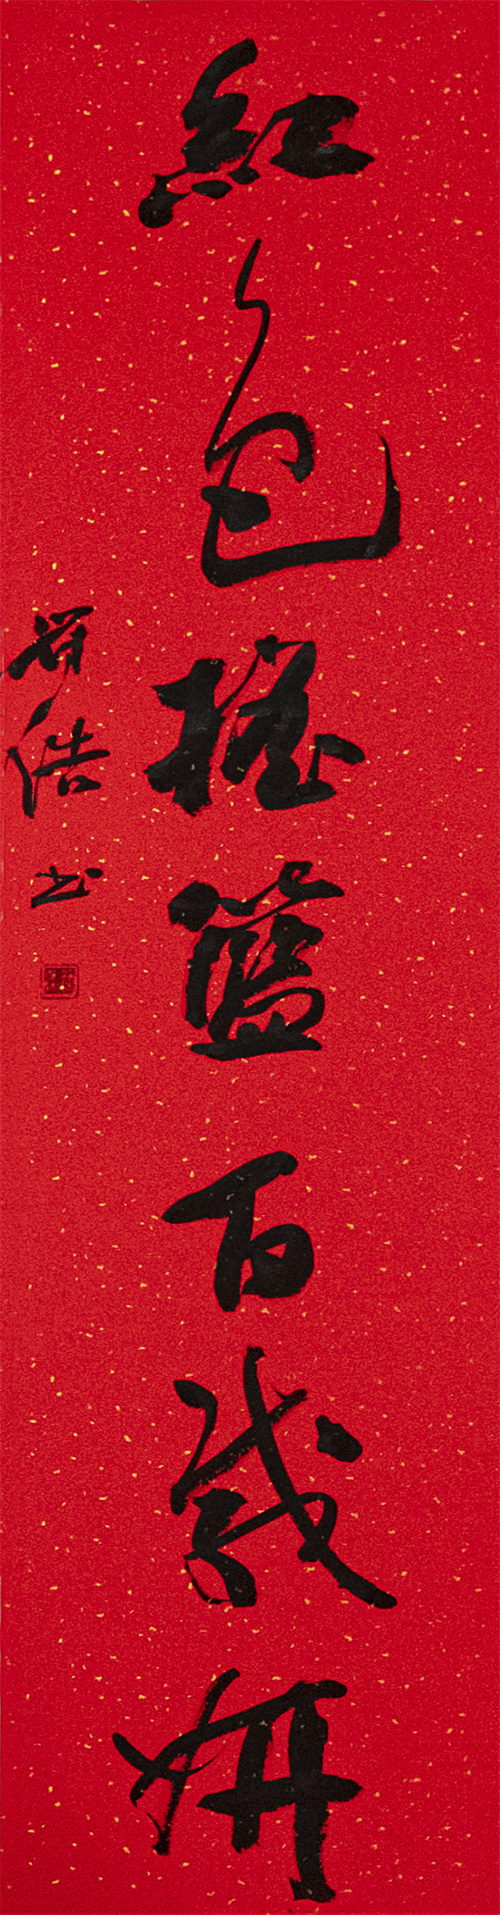 紅色搖籃百歲妍
浩书